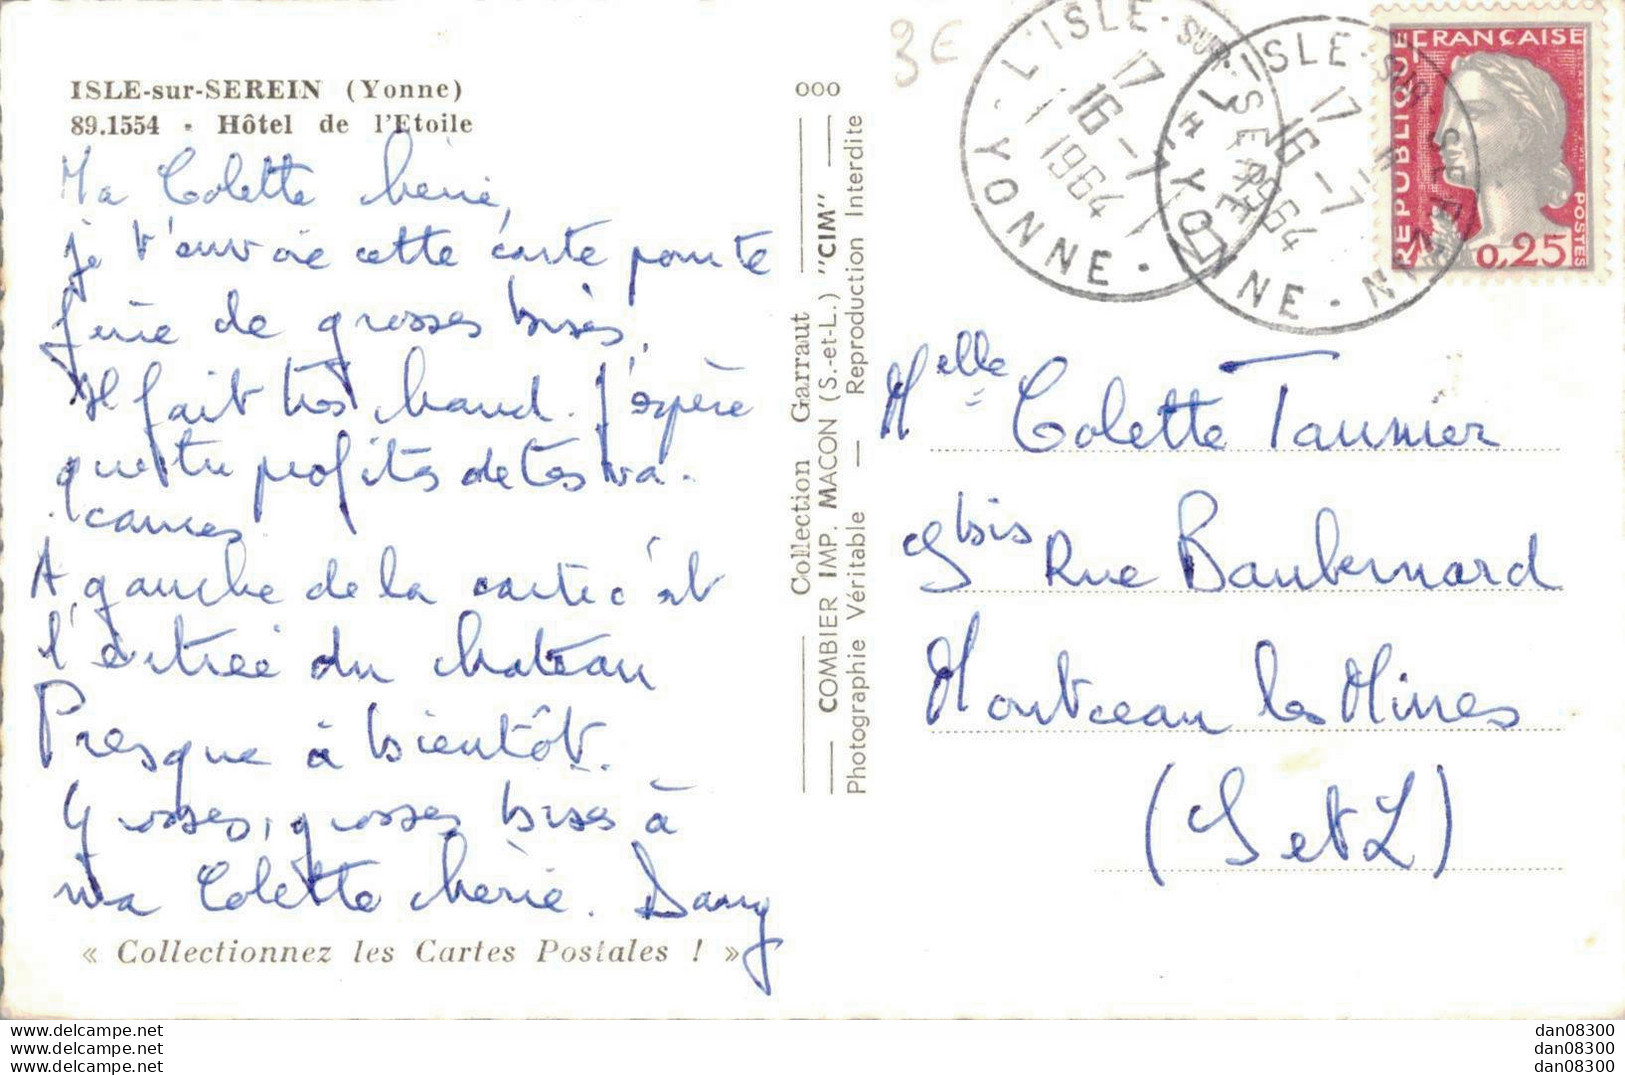 ISLE-sur-SEREIN (Yonne)
89.1554 - Hôtel de l'Etoile
Ma Colette chérie,
je t'envoie cette carte pour te
faire de grosses bises.
Il fait très chaud. J'espère
que tu profites de tes va-
cances
A gauche de la carte c'est
l'entrée du chateau
Presque à bientôt.
Grosses, grosses bises à
ma Colette chérie. Dany
« Collectionnez les Cartes Postales ! »
ooo
Collection Garraut
COMBIER IMP. MACON (S.-et-L.) "CIM"
Photographie Véritable — Reproduction Interdite
3 €
L'ISLE-SUR-SEREIN
17
16-7
1964
YONNE
L'ISLE-SUR-SEREIN
17
16-7
1964
YONNE
REPUBLIQUE FRANÇAISE
POSTES
0,25
Melle Colette Taumier
9bis Rue Baubernard
Montceau les Mines
(S et L)
www.delcampe.net
www.delcampe.net
www.delcampe.net
dan08300
dan08300
dan08300